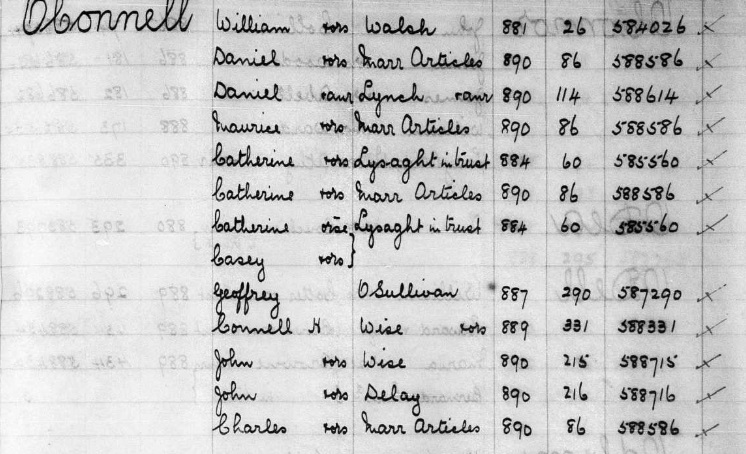 OConnell William vors Walsh 881 26 584026
Daniel vors Marr Articles 890 86 588586
Daniel & anr Lynch & anr 890 114 588614
Maurice vors Marr Articles 890 86 588586
Catherine vors Lysaght in trust 884 60 585560
Catherine vors Marr Articles 890 86 588586
Catherine orse Lysaght in trust 884 60 585560
Casey vors
Geoffrey OSullivan 887 290 587290
Connell H Wise vors 889 331 588331
John vors Wise 890 215 588715
John vors Delay 890 216 588716
Charles vors Marr Articles 890 86 588586